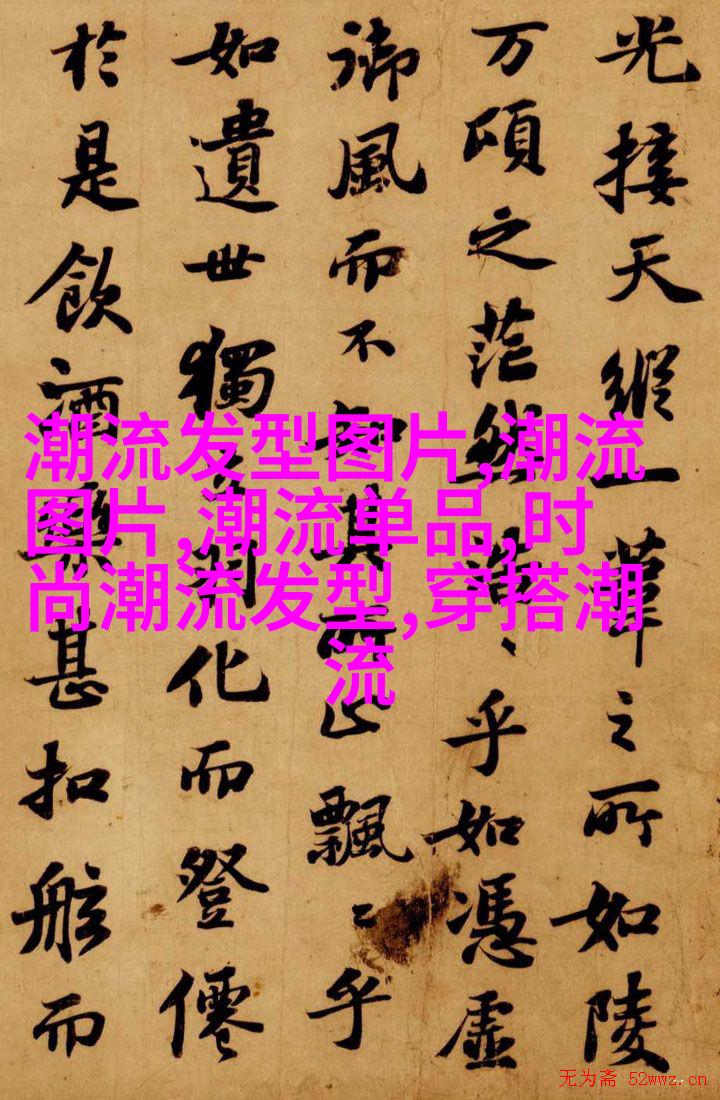 光接天縱一葦之所如陵
万頃之茫然浩〻乎如憑虛
御風而不知其所止飄〻乎
如遺世獨立羽化而登僊
於是飲酒樂甚扣舷而
潮流发型图片,潮流
图片,潮流单品,时
尚潮流发型,穿搭潮
流
无为斋 52wwz.cn